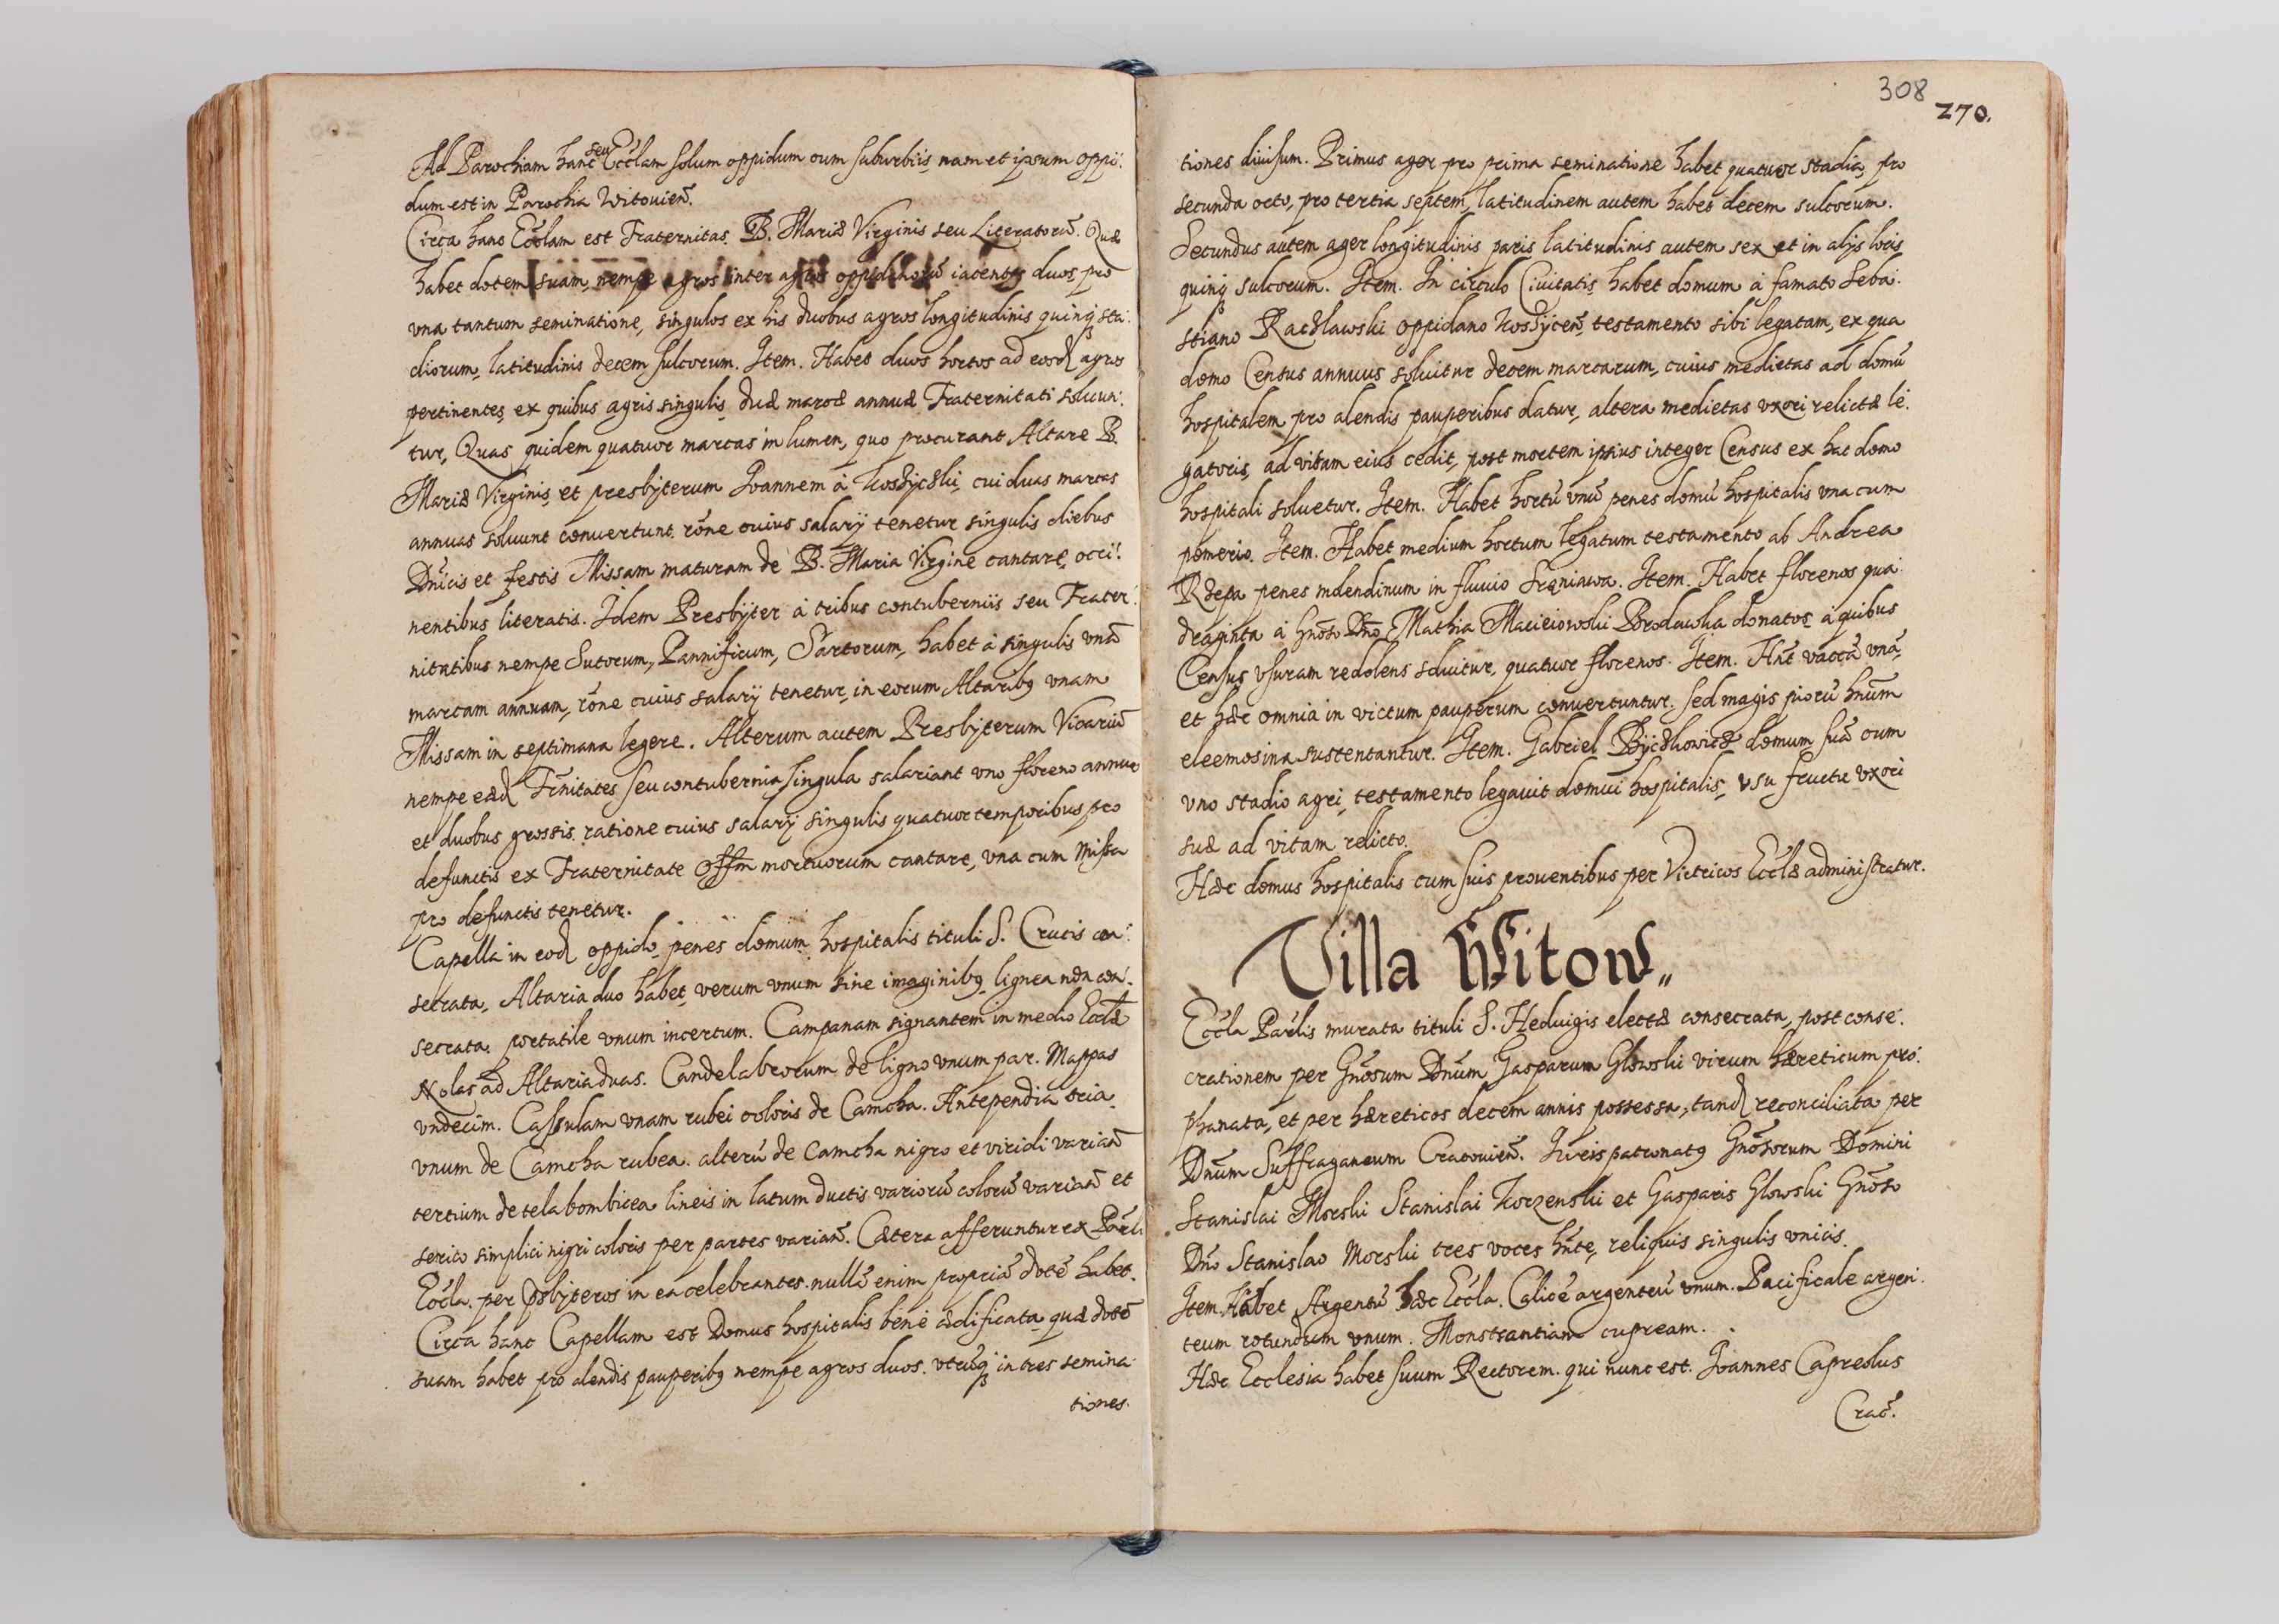 Ad Parochiam hanc seu Eccłam solum oppidum cum suburbijs nam et ipsum oppi:
dum est in Parochia Witouień.
Circa hanc Eccłam est Fraternitas B. Mariæ Virginis seu Literatorū. Quæ
habet dotem suam, nempe agros inter agros oppidanorū iacentes duos, pro
vna tantum seminatione, singulos ex his duobus agros longitudinis quinq sta:
diorum, latitudinis decem sulcorum. Item. Habet duos hortos ad eosd agros
pertinentes, ex quibus agris singulis duæ marcæ annuæ Fraternitati soluun:
tur, Quas quidem quatuor marcas in lumen, quo procurant Altare B.
Mariæ Virginis, et presbyterum Joannem à Koszyczki, cui duas marcas
annuas soluunt conuertunt. rōne cuius salarij tenetur singulis diebus
Dńicis et festis Missam maturam de B. Maria Virgine cantare, occi:
nentibus literatis. Idem Presbyter à tribus contubernijs seu Frater:
nitatibus nempe Sutorum, Pannificum, Sartorum, habet à singulis vnā
marcam annuam, rōne cuius salarij tenetur, in eorum Altaribq vnam
Missam in septimana legere. Alterum autem Presbyterum Vicariū
nempe eæd Frńitates seu contubernia singula salariant vno floreno annuo
et duobus grossis. ratione cuius salarij singulis quatuor temporibus pro
defunctis ex Fraternitate Offm mortuorum cantare, vna cum Missa
pro defunctis tenetur.
Capella in eod oppido penes domum hospitalis tituli S. Crucis con:
secrata, Altaria duo habet, verum vnum sine imaginibq lignea non con:
secrata. portatile vnum incertum. Campanam signantem in medio Eccłæ
Nolas ad Altaria duas. Candelabrorum de ligno vnum par. Mappas
vndecim. Cassulam vnam rubei coloris de Camcha. Antependia tria,
vnum de Camcha rubea. alterū de Camcha nigro et viridi variatū
tertium de tela bombicea lineis in latum ductis variorū colorū variatū et
serico simplici nigri coloris per partes variatū. Cætera afferuntur ex Parli
Eccła. per psbyteros in ea celebrantes. nullā enim propriā dotē habet.
Circa hanc Capellam est Domus hospitalis benè ædificata, quæ dotē
suam habet pro alendis pauperibq nempe agros duos. vtrūq in tres semina
tiones.
308
270.
tiones diuisum. Primus ager pro prima seminatione habet quatuor stadia, pro
secunda octo, pro tertia septem, latitudinem autem habet decem sulcorum.
Secundus autem ager longitudinis paris latitudinis autem sex et in alijs locis
quinq sulcorum. Item. In circulo Ciuitatis habet domum à famato Seba:
stiano Raczlawski oppidano Koszycen, testamento sibi legatam, ex qua
domo Census annuus soluitur decem marcarum, cuius medietas ad domū
hospitalem pro alendis pauperibus datur, altera medietas vxori relictæ le:
gatoris, ad vitam eius cedit, post mortem ipsius integer Census ex hac domo
hospitali soluetur. Item. Habet hortū vnū penes domū hospitalis vna cum
pomerio. Item. Habet medium hortum legatum testamento ab Andrea
Rzepa penes molendinum in fluuio Sreniawa. Item. Habet florenos qua:
draginta à Gnōso Dńo Mathia Macieiowski Brodawka donatos à quibus
Census vsuram redolens soluitur, quatuor florenos. Item. Hńt vaccā vnā,
et hæc omnia in victum pauperum conuertuntur. sed magis piorū hńum
eleemosina sustentantur. Item. Gabriel Byczkowicz domum suā cum
vno stadio agri, testamento legauit domui hospitalis, vsu fructu vxori
suæ ad vitam relicto.
Hæc domus hospitalis cum suis prouentibus per Vitricos Eccłæ administratur.
Villa Witow„
Eccła Parlis murata tituli S. Heduigis electæ consecrata, post conse:
crationem per Gnōsum Dńum Gasparum Glowski virum hæreticum pro:
phanata, et per hæreticos decem annis possessa, tand reconciliata per
Dńum Suffraganeum Cracouień. Iuris patronatq Gnōsorum Domini
Stanislai Morski Stanislai Korzenski et Gasparis Glowski Gnōso
Dńo Stanislao Morski tres voces hńte, reliquis singulis vnicis.
Item. Habet Argentū hæc Eccła. Calicē argenteū vnum. Pacificale argen:
teum rotundum vnum. Monstrantiam cupream.
Hæc Ecclesia habet suum Rectorem. qui nunc est. Joannes Capreolus
Crac̄.